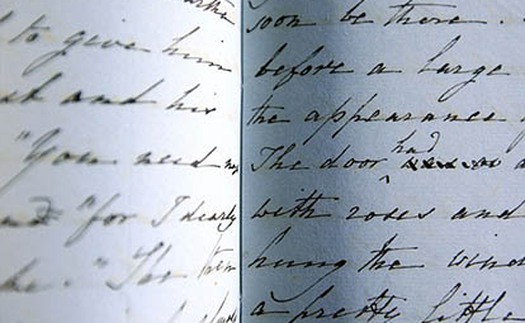 to give him
and his
"You need
"for I dearly
be." The
soon be there.
before a large
the appearance
The door had
with roses and
hung the wind
a pretty little